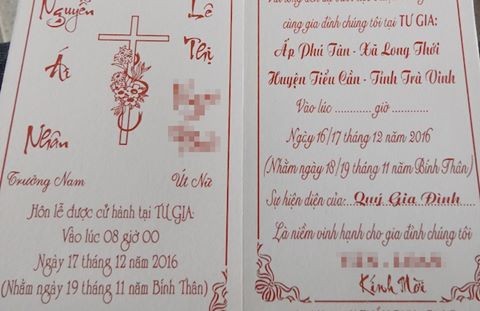 Nguyễn
Ái
Nhân
Trưởng Nam
Lê
Thị
Út Nữ
Hôn lễ được cử hành tại TƯ GIA:
Vào lúc 08 giờ 00
Ngày 17 tháng 12 năm 2016
(Nhằm ngày 19 tháng 11 năm Bính Thân)
cùng gia đình chúng tôi tại TƯ GIA:
Ấp Phú Tân - Xã Long Thới
Huyện Tiểu Cần - Tỉnh Trà Vinh
Vào lúc ............giờ ............
Ngày 16/17 tháng 12 năm 2016
(Nhằm ngày 18/19 tháng 11 năm Bính Thân)
Sự hiện diện của: Quý Gia Đình
Là niềm vinh hạnh cho gia đình chúng tôi
Kính Mời